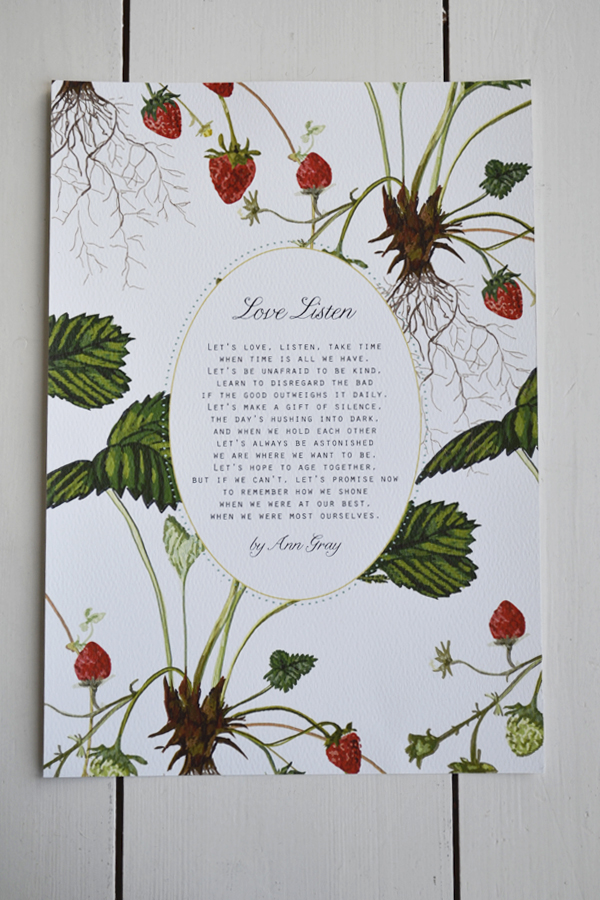 Love Listen
LET'S LOVE, LISTEN, TAKE TIME
WHEN TIME IS ALL WE HAVE.
LET'S BE UNAFRAID TO BE KIND,
LEARN TO DISREGARD THE BAD
IF THE GOOD OUTWEIGHS IT DAILY.
LET'S MAKE A GIFT OF SILENCE,
THE DAY'S HUSHING INTO DARK,
AND WHEN WE HOLD EACH OTHER
LET'S ALWAYS BE ASTONISHED
WE ARE WHERE WE WANT TO BE.
LET'S HOPE TO AGE TOGETHER,
BUT IF WE CAN'T, LET'S PROMISE NOW
TO REMEMBER HOW WE SHONE
WHEN WE WERE AT OUR BEST,
WHEN WE WERE MOST OURSELVES.
by Ann Gray